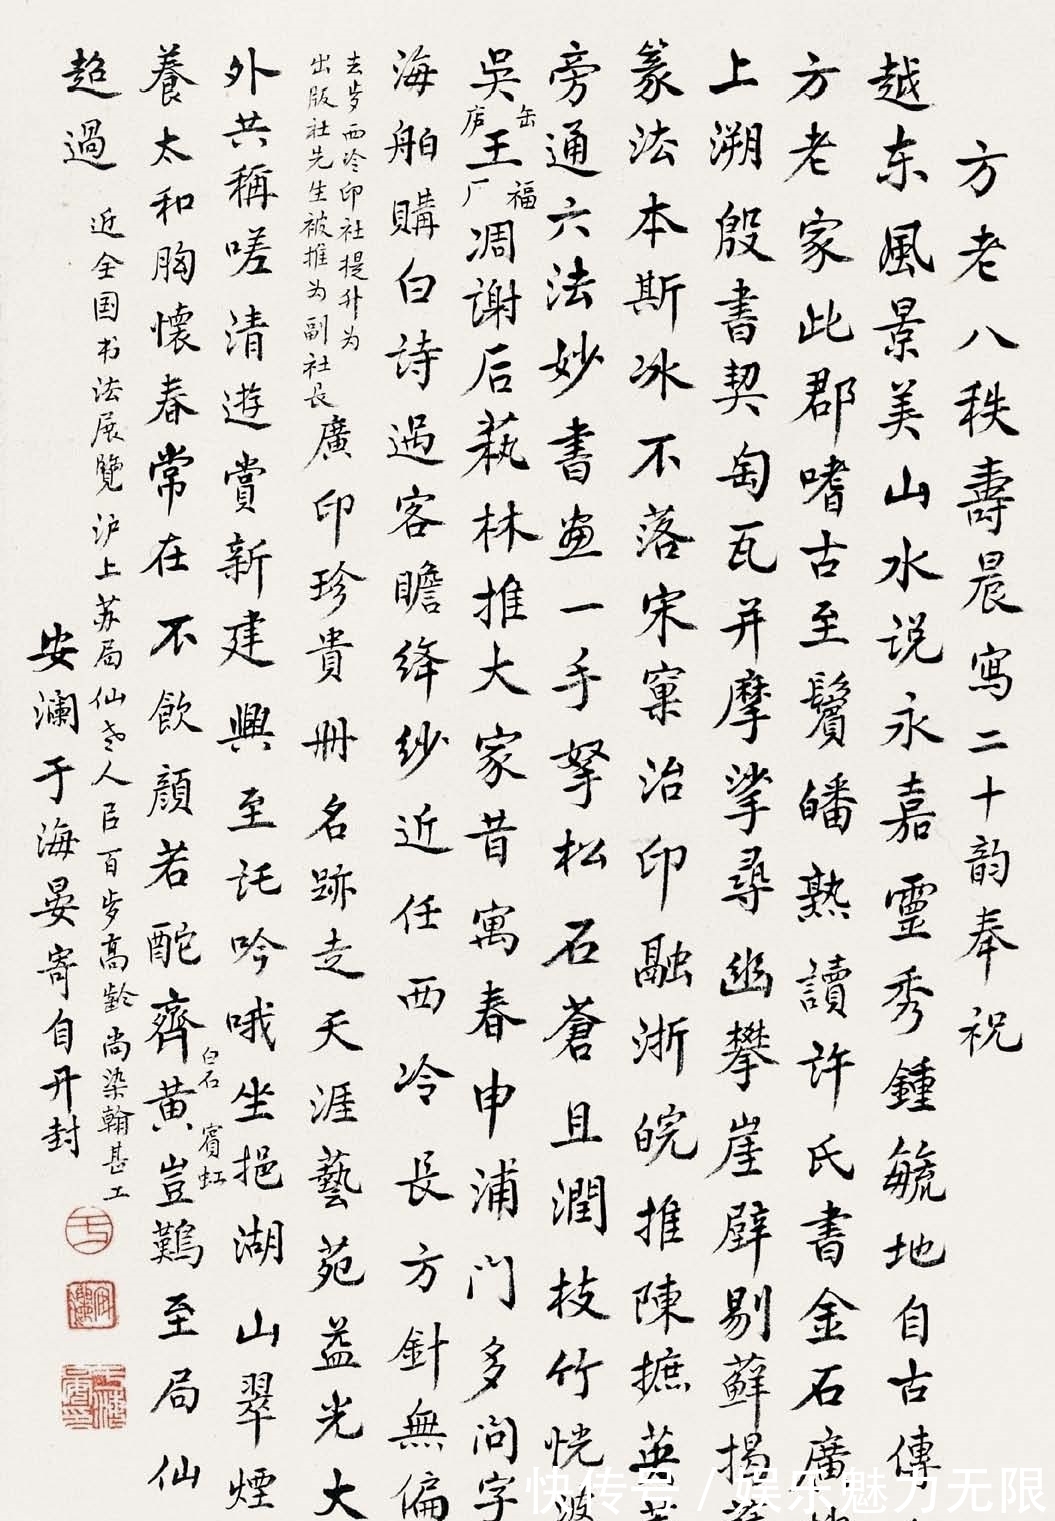 方老八秩壽晨寫二十韵奉祝
越东風景美山水说永嘉靈秀鍾毓地自古傳
方老家此郡嗜古至鬢皤熟讀许氏書金石廣
上溯殷書契匋瓦并摩挲尋幽攀崖壁剔蘚搨
篆法本斯冰不落宋窠治印融浙皖推陳摭英
旁通六法妙書画一手拏松石蒼且潤枝竹恍
吳缶庐王福厂凋谢后蓺林推大家昔寓春申浦门多问字
海舶購白诗過客瞻绛纱近任西冷長方針無偏
去岁西冷印社提升为
出版社先生被推为副社长
廣印珍貴册名跡走天涯藝苑益光大
外共稱嗟清遊賞新建興至託吟哦坐挹湖山翠煙
養太和胸懷春常在不飲顔若酡齊白石黄賓虹豈難至局仙
超過
近全国书法展覽沪上苏局仙老人百步高齡尚染翰甚工
安澜于海晏寄自开封
快传号/娱乐魅力无限